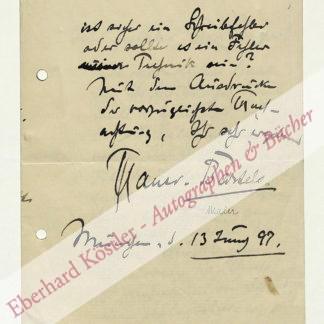 ist sicher ein Schreibfehler
oder sollte es ein Fehler
meiner Technik sein?
Mit dem Ausdrucke
der vorzüglichsten Hoch-
achtung, Ihr sehr
Hans v. Bartels.
Maler
München, d. 13 Juny 97.
Eberhard Köstler - Autographen & Bücher